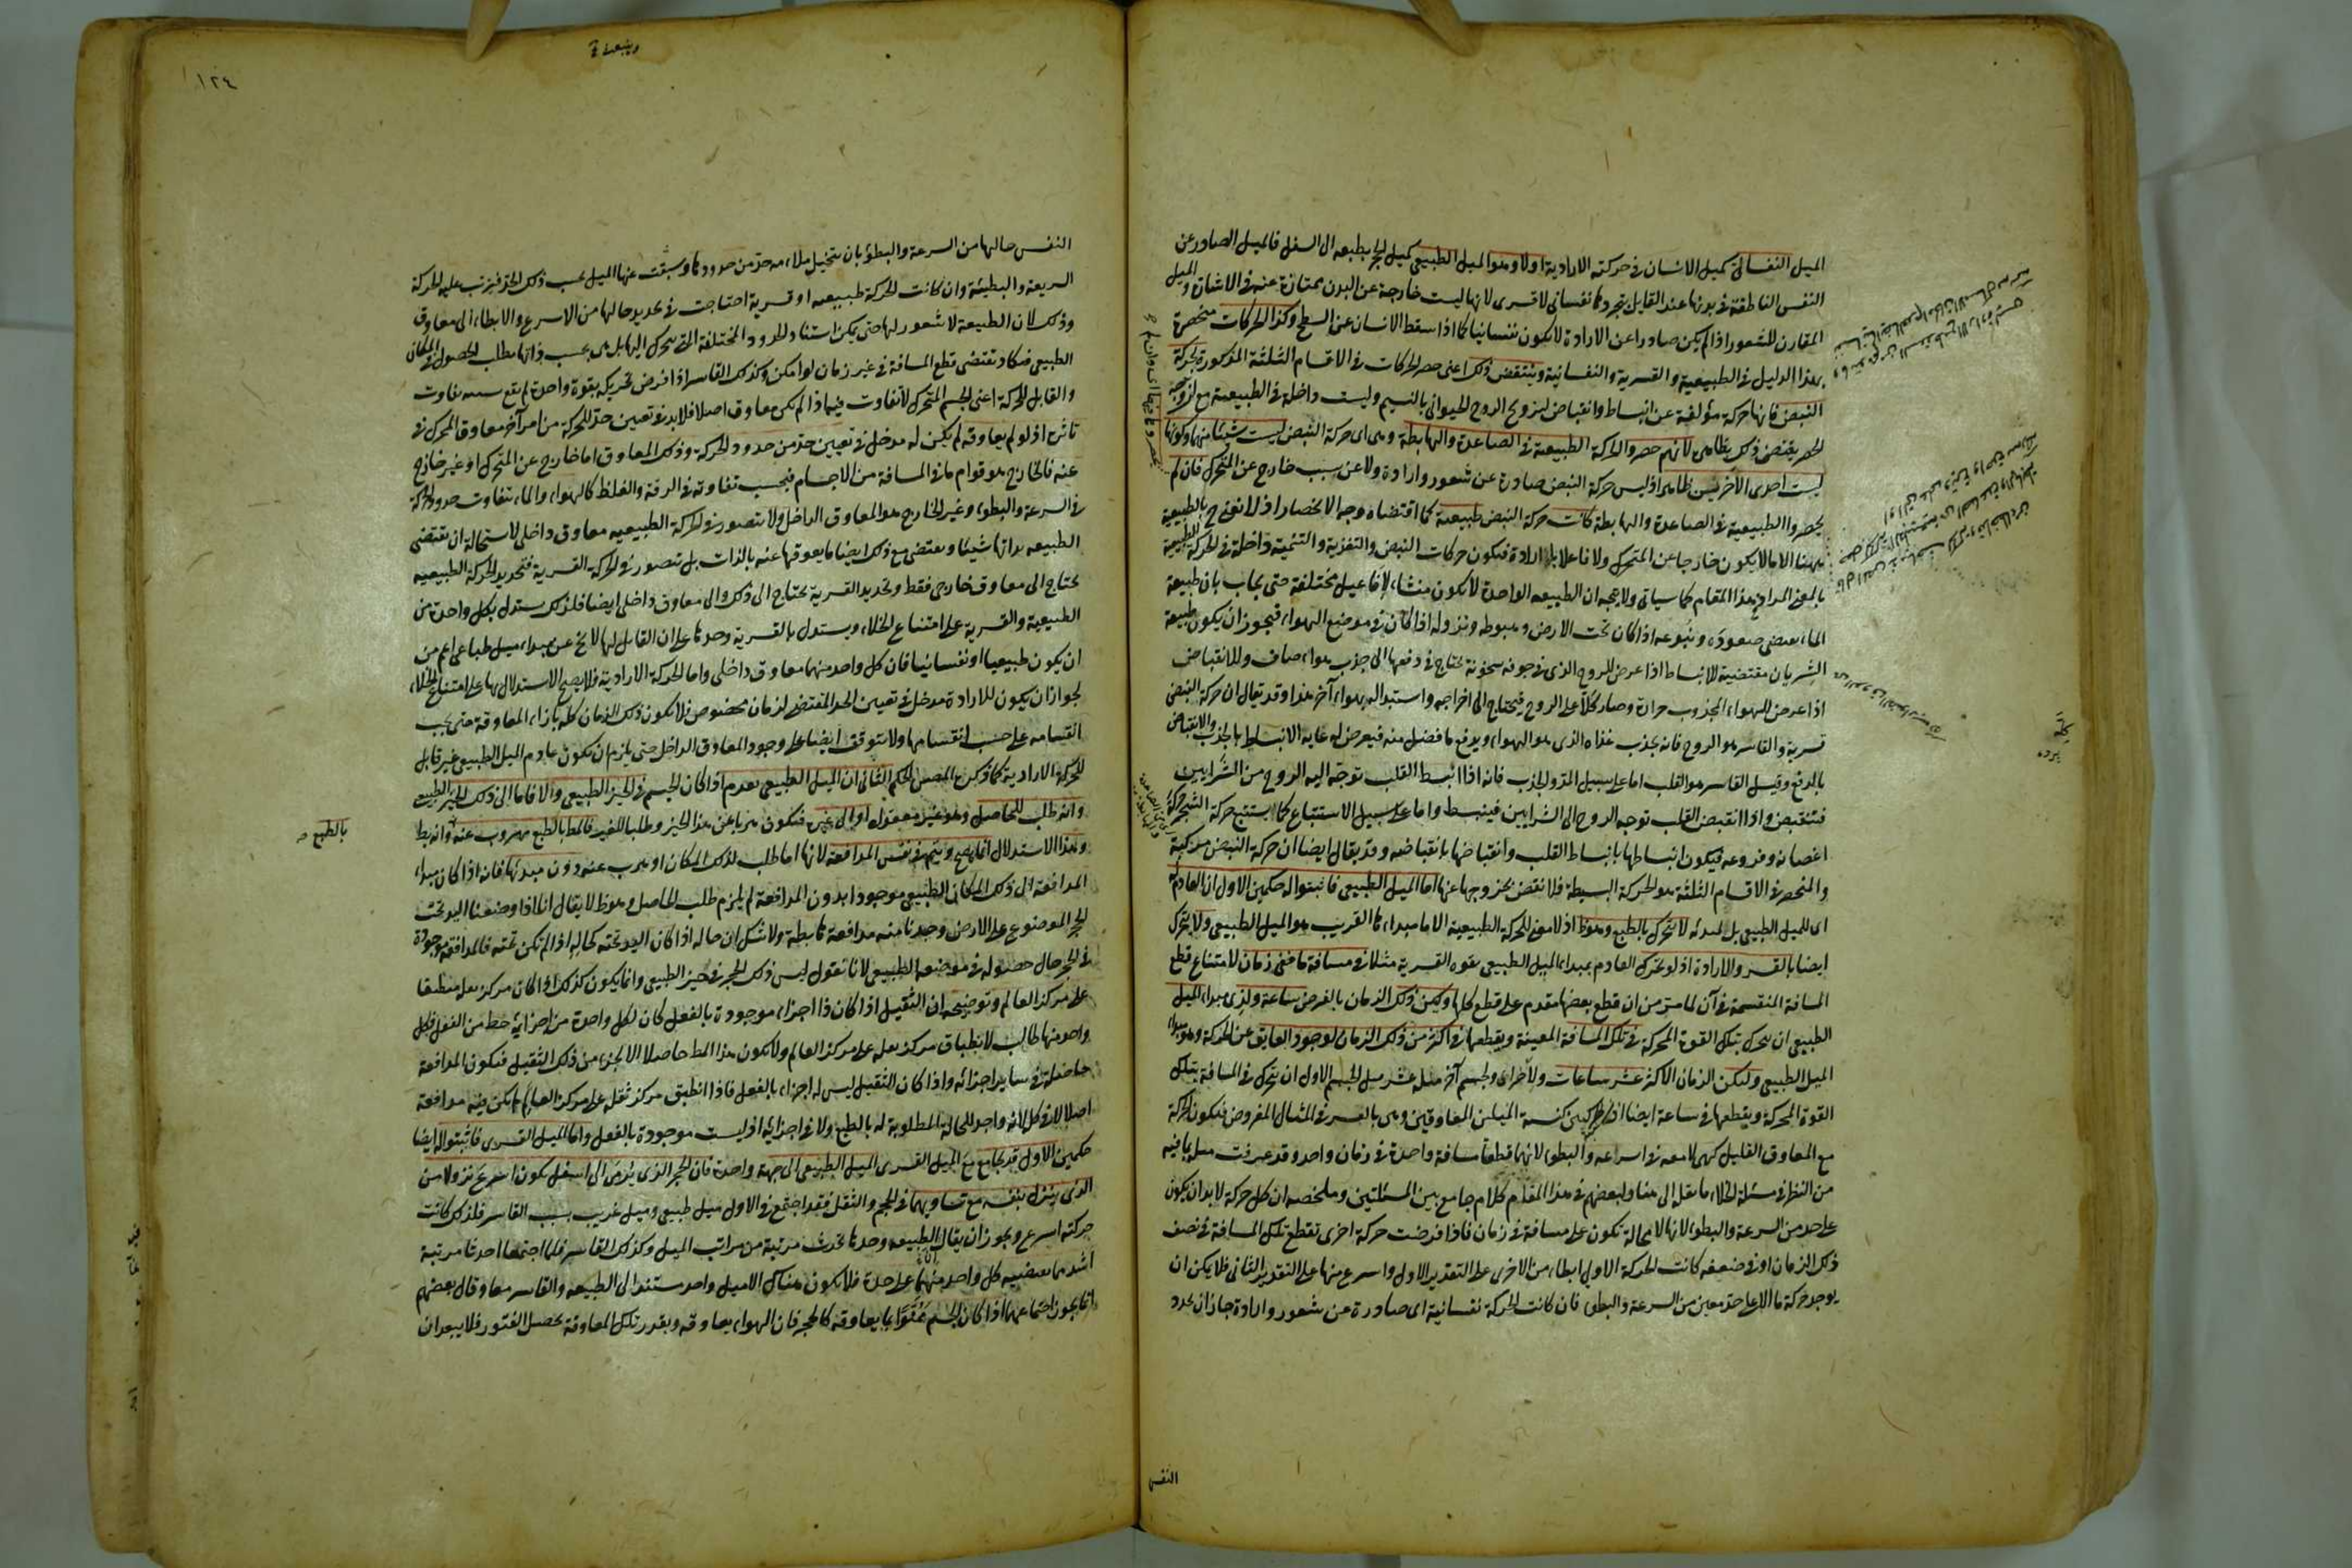 الميل النفساني كميل الانسان في حركته الارادية اولا وهو الميل الطبيعي كميل الحجر بطبعه الى السفل فالميل الصادر عن
النفس الناطقة في بدنها عند القايل بتجردها نفساني لا قسري لانها ليست خارجة عن البدن ممتازة عنه في الاشارة والميل
المقارن للشعور اذا لم يكن صادرا عن الارادة لا يكون نفسانيا كما اذا سقط الانسان عن السطح وكذا الحركات منحصرة
بهذا الدليل في الطبيعية والقسرية والنفسانية وينتقض ذلك اعنى حصر الحركات في الاقسام الثلثة المذكورة بحركة
النبض فانها حركة مؤلفة عن انبساط وانقباض لترويح الروح الحيواني بالنسيم وليست داخلة في الطبيعية
لانهم حصروا الحركة الطبيعية في الصاعدة والهابطة وهى اى حركة النبض ليست شيئا منهما وكونها
ليست احدى الاخريين ظاهر اذ ليس حركة النبض صادرة عن شعور وارادة ولا عن سبب خارج عن المتحرك فان لم
يحصروا الطبيعية في الصاعدة والهابطة كانت حركة النبض طبيعية كما اقتضاه وجه الانحصار اذ لا نعنى بالطبيعية
ههنا الا ما لا يكون خارجا عن المتحرك ولا فاعلا بالارادة فيكون حركات النبض والتغذية والتنمية داخلة في الحركة الطبيعية
بالمعنى المراد في هذا المقام كما سياتى ولا يتجه ان الطبيعة الواحدة لا يكون منشاء لافاعيل مختلفة حتى يجاب بان طبيعة
الماء يقتضى صعوده ونبوعه اذا كان تحت الارض وهبوطه ونزوله اذا كان في موضع الهواء فيجوز ان يكون طبيعة
الشريان مقتضية للانبساط اذا عرض للروح الذى في جوفه سخونة يحتاج في دفعها الى جذب هواء صاف وللانقباض
اذا عرض للهواء المجذوب حرارة وصار كلا على الروح فيحتاج الى اخراجه واستبداله بهواء آخر هذا وقد يقال ان حركة النبض
قسرية والقاسر هو الروح فانه يجذب غذاه الذى هو الهواء ويدفع ما فضل منه فيعرض له غاية الانبساط بالجذب والانقباض
بالدفع وقيل القاسر هو القلب اما على سبيل المد والجذب فانه اذا انبسط القلب توجه اليه الروح من الشرايين
فتنقبض واذا انقبض القلب توجه الروح الى الشرايين فينبسط واما على سبيل الاستتباع كما يستتبع حركة الشجر حركة
اغصانه وفروعه فيكون انبساطها بانبساط القلب وانقباضها بانقباضه وقد يقال ايضا ان حركة النبض مركبة
والمنحصر في الاقسام الثلثة هو الحركة البسيطة فلا نقض بخروجها عنها اما الميل الطبيعي فاثبتوا له حكمين الاول ان العادم له
اى للميل الطبيعي بل لمبدئه لا يتحرك بالطبع وهو ظ اذ لا معنى للحركة الطبيعية الا ما مبداءها القريب هو الميل الطبيعي ولا يتحرك
ايضا بالقسر والارادة اذ لو تحرك العادم بمبداء الميل الطبيعي بقوة القسرية مثلا في مسافة ما ففى زمان لامتناع قطع
المسافة المنقسمة في آن لما مر من ان قطع بعضها مقدم على قطع كلها وليكن ذلك الزمان بالفرض ساعة ولذى مبداء الميل
الطبيعي ان يتحرك بتلك القوة المحركة في تلك المسافة المعينة ويقطعها في اكثر من ذلك الزمان لوجود العايق عن الحركة وهو مبداء
الميل الطبيعي وليكن الزمان الاكثر عشر ساعات ولآخر اى ولجسم آخر ميله عشر ميل الجسم الاول ان يتحرك في المسافة بتلك
القوة المحركة ويقطعها في ساعة ايضا اذ نسبة الحركتين كنسبة الميلين المعاوقين وهى بالعشر في المثال المفروض فيكون الحركة
مع المعاوق القليل كهى لا معه في السرعة والبطؤ لانهما قطعتا مسافة واحدة في زمان واحد وقد عرفت ما فيه
من النظر في مسئلة الخلاء ولبعضهم في هذا المقام كلام جامع بين المسئلتين وملخصه ان كل حركة لا بد ان يكون
على حد من السرعة والبطؤ لانها لا محالة تكون على مسافة في زمان فاذا فرضت حركة اخرى تقطع تلك المسافة في نصف
ذلك الزمان او في ضعفه كانت الحركة الاولى ابطاء من الاخرى على التقدير الاول واسرع منها على التقدير الثاني فلا يمكن ان
يوجد حركة ما الا على حد معين من السرعة والبطؤ فان كانت الحركة نفسانية اى صادرة عن شعور وارادة جاز ان يحدد
النفس
١٢٤
النفس حالها من السرعة والبطؤ بان يتخيل ملاءمه حد من حدودها وينبعث عنها الميل بحسب ذلك الحد فيترتب عليه الحركة
السريعة والبطيئة وان كانت الحركة طبيعية او قسرية احتاجت في تحديد حالها من الاسراع والابطاء الى معاوق
وذلك لان الطبيعة لا شعور لها حتى يمكن استناد الحدود المختلفة التى يتحرك اليها بل هى بحسب ذاتها تطلب الحصول في المكان
الطبيعي فتكاد تقتضى قطع المسافة في غير زمان لو امكن وكذلك القاسر اذا فرض تحريكه بقوة واحدة لم يقع بسببه تفاوت
والقابل للحركة اعنى الجسم المتحرك لا تفاوت فيه اذا لم يكن معاوق اصلا فلا بد في تعيين حد للحركة من امر آخر معاوق المحرك في
تاثيره اذ لو لم يعاوقه لم يكن له مدخل في تعيين حد من حدود الحركة وذلك المعاوق اما خارج عن المتحرك او غير خارج
عنه فالخارج هو قوام ما في المسافة من الاجسام فبحسب تفاوته في الرقة والغلظ كالهواء والماء يتفاوت حدود الحركة
في السرعة والبطؤ وغير الخارج هو المعاوق الداخل ولا يتصور في الحركة الطبيعية معاوق داخلي لاستحالة ان يقتضى
الطبيعة بذاتها شيئا ويقتضى مع ذلك ايضا ما يعوقها عنه بالذات بل يتصور في الحركة القسرية فتحديد الحركة الطبيعية
يحتاج الى معاوق خارجى فقط وتحديد القسرية يحتاج الى ذلك والى معاوق داخلي ايضا فلذلك يستدل بكل واحدة من
الطبيعية والقسرية على امتناع الخلاء ويستدل بالقسرية وحدها على ان القابل لها لا يخ عن مبداء ميل طباعى اعم من
ان يكون طبيعيا او نفسانيا فان كل واحد منهما معاوق داخلي واما الحركة الارادية فلا يصح الاستدلال بها على امتناع الخلاء
لجواز ان يكون للارادة مدخل في تعيين الحد المقتضى لزمان مخصوص فلا يكون ذلك الزمان كله بازاء المعاوقة حتى يجب
انقسامه على حسب انقسامها ولا يتوقف ايضا على وجود المعاوق الداخل حتى يلزم ان يكون عادم الميل الطبيعي غير قابل
للحركة الارادية كما ذكره المصنف الحكم الثاني ان الميل الطبيعي يعدم اذا كان الجسم في الحيز الطبيعي والا فاما الى ذلك الحيز الطبيعي
وانه طلب للحاصل وهو غير معقول او الى غيره فيكون هربا عن هذا الحيز وطلبا للغير فالمط بالطبع مهروب عنه وانه بط
وهذا الاستدلال انما يصح ويتم في نفس المدافعة لانها اما طلب لذلك المكان او هرب عنه دون مبدئها فانه اذا كان مبداء
المدافعة الى ذلك المكان الطبيعي موجودا بدون المدافعة لم يلزم طلب الحاصل وهو ظ لا يقال انا اذا وضعنا اليد تحت
الحجر الموضوع على الارض وجدنا منه مدافعة هابطة ولا شك ان حاله اذا كان اليد تحته كحاله اذا لم تكن تحته فالمدافعة موجودة
في الحجر حال حصوله في موضعه الطبيعي لانا نقول ليس ذلك الحجر في حيزه الطبيعي وانما يكون كذلك اذا كان مركز ثقله منطبقا
على مركز العالم وتوضيحه ان الثقيل اذا كان ذا اجزاء موجودة بالفعل كان لكل واحدة من اجزائه حظ من الثقل فكل
واحد منها طالب لانطباق مركز ثقله على مركز العالم ولا يكون هذا المط حاصلا الا لجزء من ذلك الثقيل فيكون المدافعة
حاصلة في ساير اجزائه واذا كان الثقيل ليس له اجزاء بالفعل فاذا انطبق مركز ثقله على مركز العالم لم يكن فيه مدافعة
اصلا لا في كله لانه واجد للحالة المطلوبة له بالطبع ولا في اجزائه اذ ليست موجودة بالفعل واما الميل القسرى فاثبتوا له ايضا
حكمين الاول قد يجامع مع الميل القسرى الميل الطبيعي الى جهة واحدة فان الحجر الذى يرمى الى اسفل يكون اسرع نزولا من
الذى ينزل بنفسه مع تساويهما في الحجم والثقل فقد اجتمع في الاول ميل طبيعى وميل غريب بسبب القاسر فلذلك كانت
حركته اسرع ويجوز ان يقال الطبيعة وحدها تحدث مرتبة من مراتب الميل وكذلك القاسر فلما اجتمعا احدثا مرتبة
اشد مما يقتضيه كل واحد منهما على حدة فلا يكون هناك الا ميل واحد مستند الى الطبيعة والقاسر معا وقال بعضهم
انما يجوز اجتماعهما اذا كان الجسم ممنوا بما يعاوقه كالحجر فان الهواء يعاوقه وبقدر تلك المعاوقة يحصل الفتور فلا يبعد ان
بالطبع